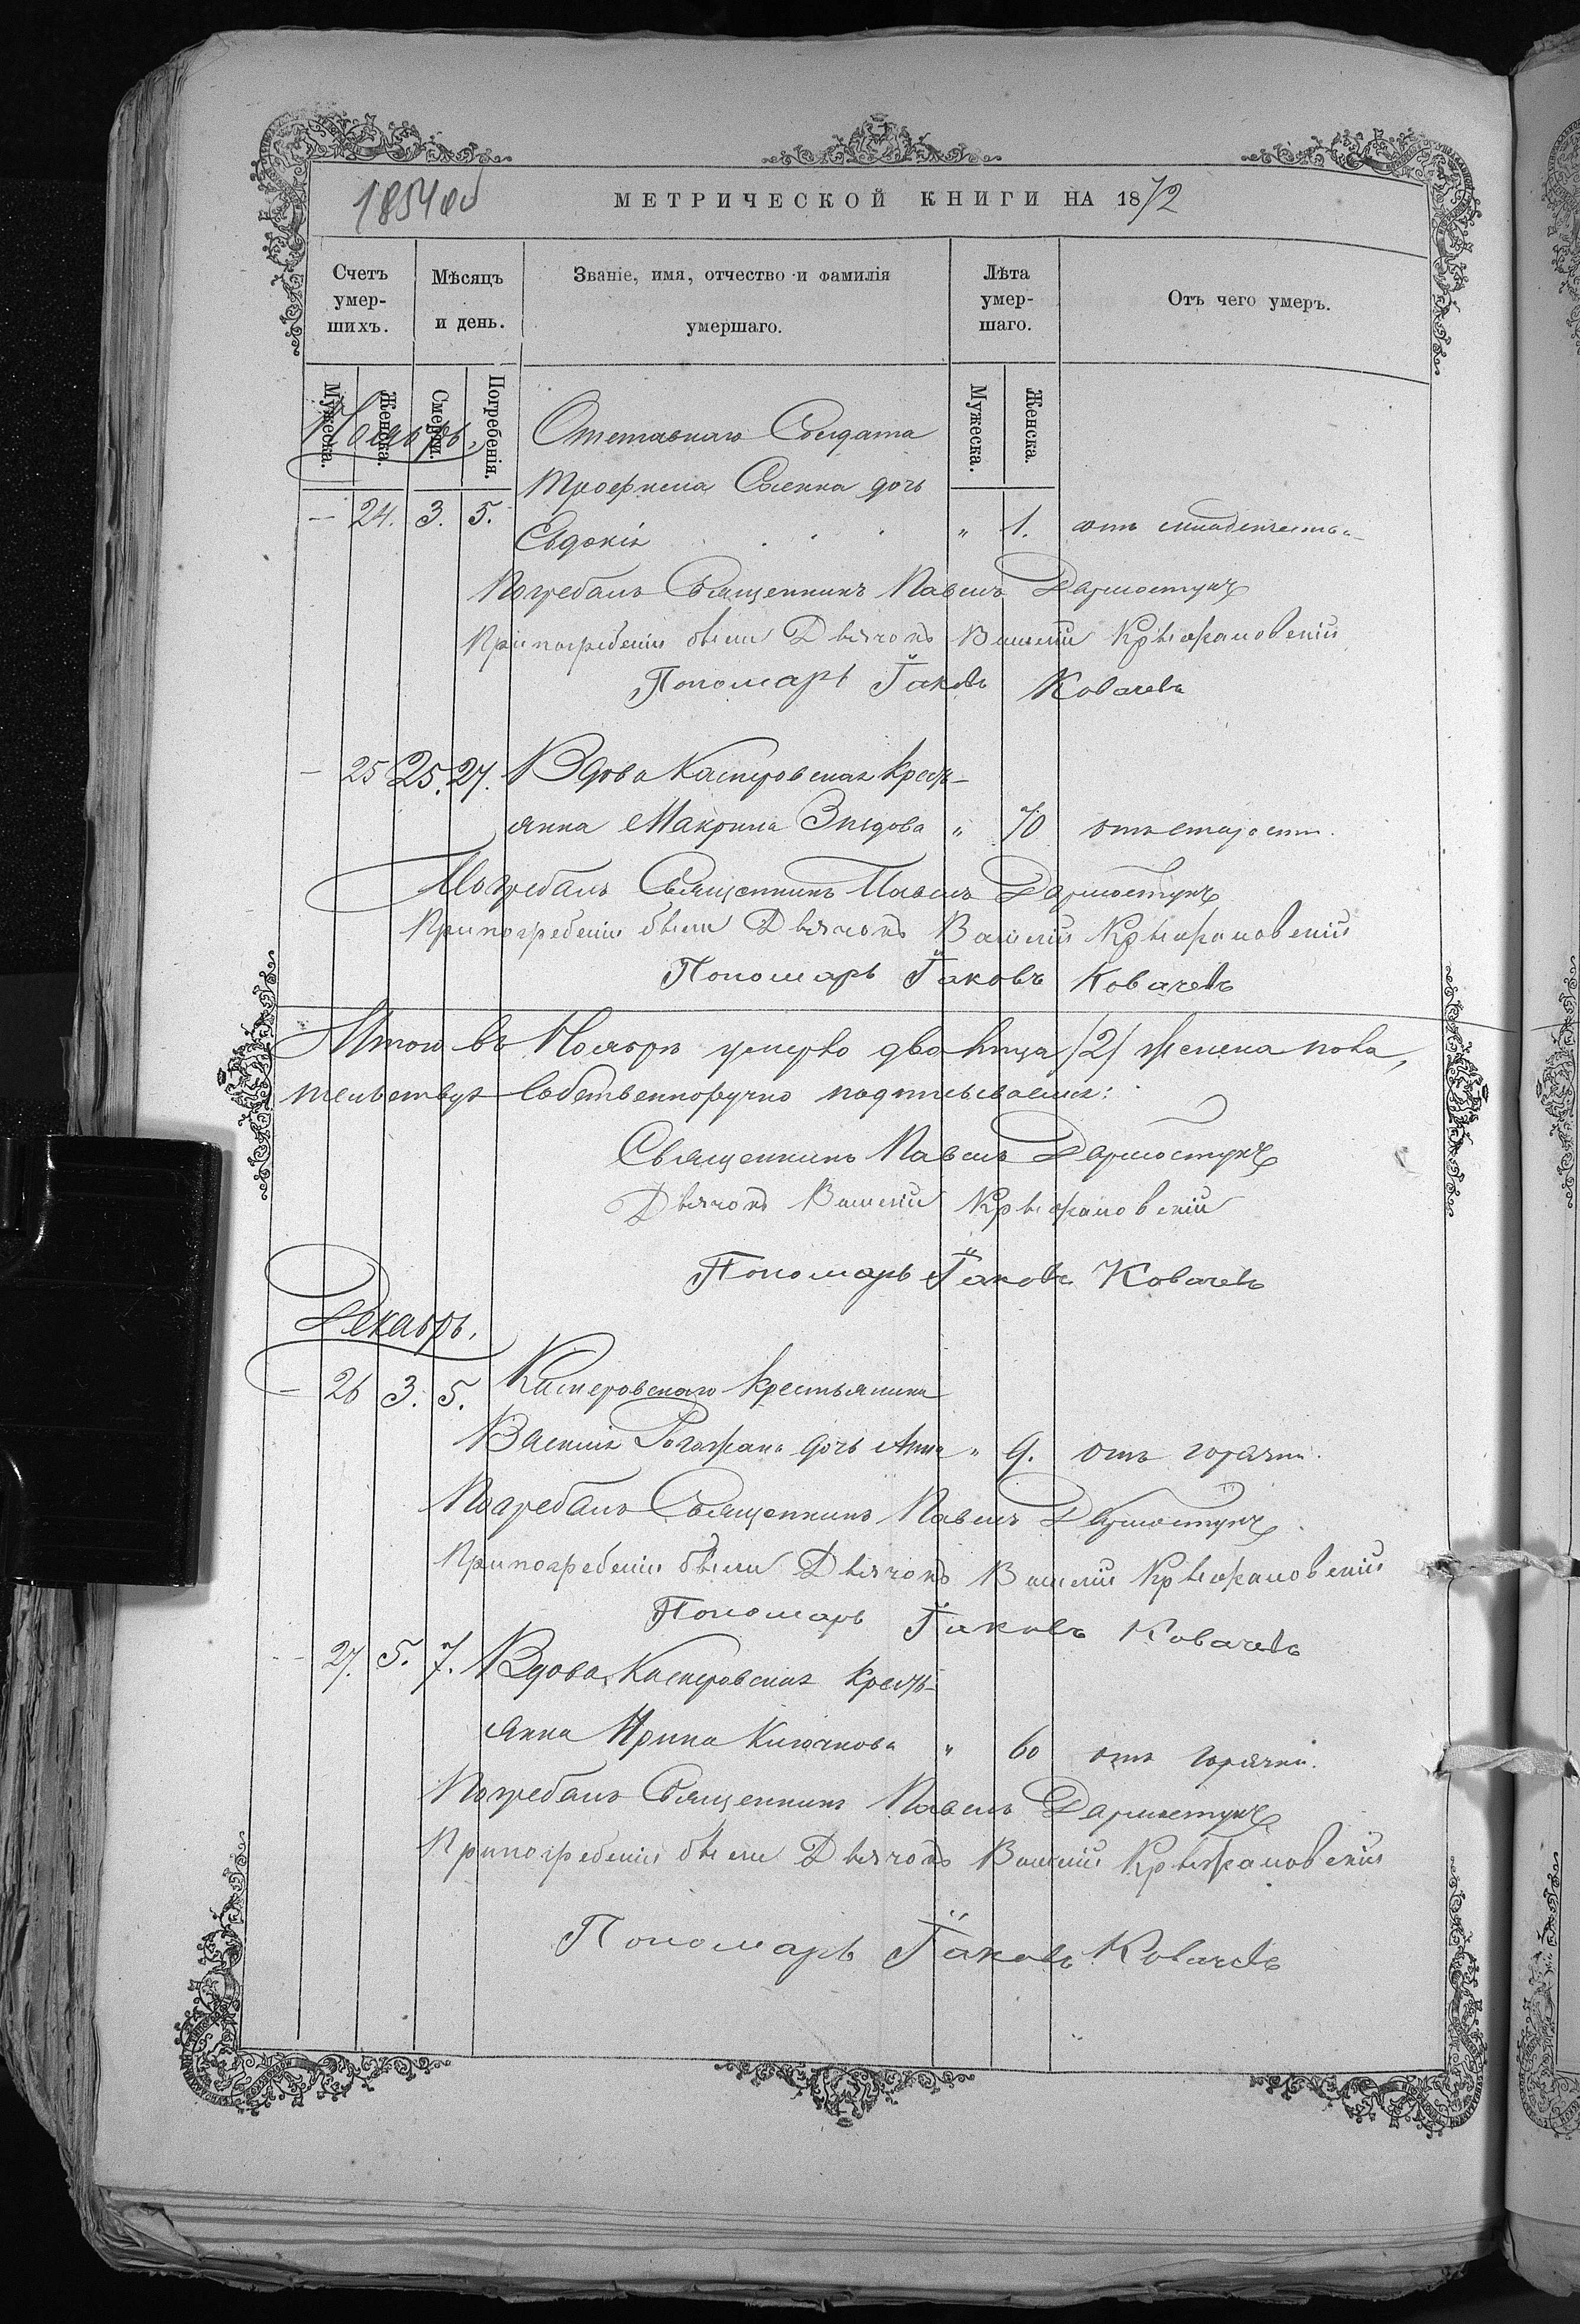 1854 об
МЕТРИЧЕСКОЙ КНИГИ НА 1872
Счетъ умер-шихъ.
Мѣсяцъ и день.
Званіе, имя, отчество и фамилія умершаго.
Лѣта умер-шаго.
Отъ чего умеръ.
Мужеска. Женска. Смерти. Погребенія. Мужеска. Женска.
Ноябрь,
Отставнаго Солдата
дочь
— 24. 3. 5. Евдокія " 1. отъ
Погребалъ Священникъ Павелъ Дармостукъ
При погребеніи были Дьячокъ Василій Крыжановскій
Пономарь Іаковъ Ковачевъ
— 25 25. 27. Вдова Касперовская кресть-
янка Макрина " 70 отъ старости.
Погребалъ Священникъ Павелъ Дармостукъ
При погребеніи были Дьячокъ Василій Крыжановскій
Пономарь Іаковъ Ковачевъ
Итого въ Ноябрѣ умерло два лица /2/ женска пола,
собственноручно подписываемся:
Священникъ Павелъ Дармостукъ
Дьячокъ Василій Крыжановскій
Пономарь Іаковъ Ковачевъ
Декабрь.
— 26 3. 5. Касперовскаго Крестьянина
Василія дочь Анна " 9. отъ горячки.
Погребалъ Священникъ Павелъ Дармостукъ
При погребеніи были Дьячокъ Василій Крыжановскій
Пономарь Іаковъ Ковачевъ
— 27. 5. 7. Вдова, Касперовская кресть-
янка Ирина " 60 отъ горячки.
Погребалъ Священникъ Павелъ Дармостукъ
При погребеніи были Дьячокъ Василій Крыжановскій
Пономарь Іаковъ Ковачевъ